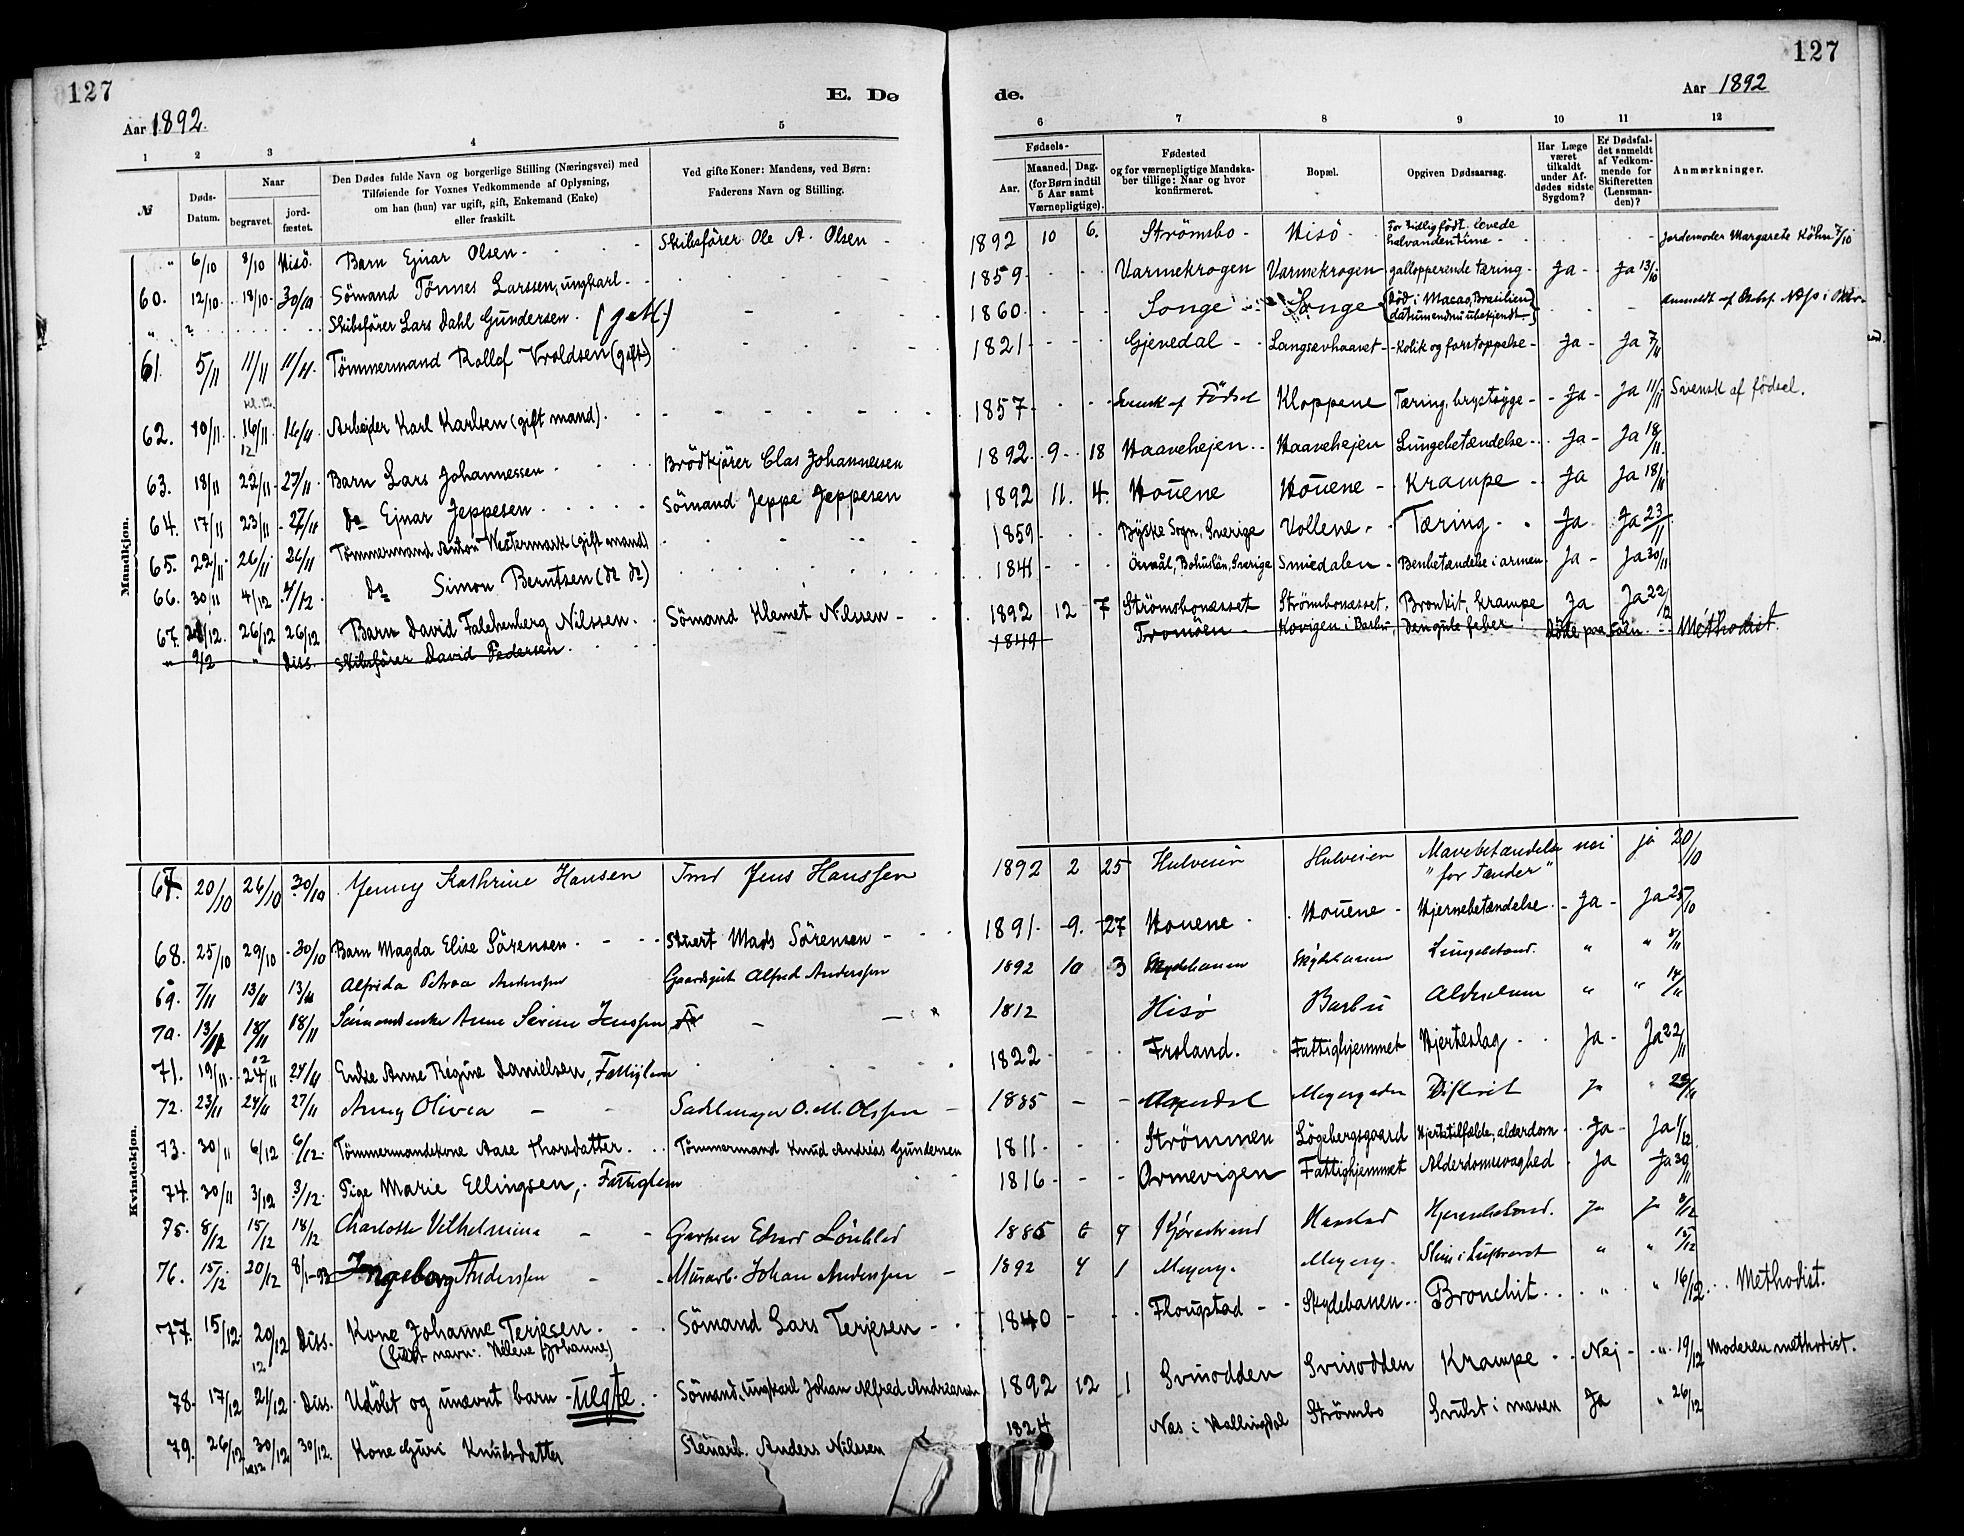 127
127
E. Dø
de.
Aar 1892.
Aar 1892
1 2 3 4 5 6 7 8 9 10 11 12
№
Døds-Datum.
Naar
begravet.
jord-fæstet.
Den Dødes fulde Navn og borgerlige Stilling (Næringsvei) med
Tilføiende for Voxnes Vedkommende af Oplysning,
om han (hun) var ugift, gift, Enkemand (Enke)
eller fraskilt.
Ved gifte Koner: Mandens, ved Børn:
Faderens Navn og Stilling.
Fødsels-
Aar.
Maaned. Dag.
(for Børn indtil
5 Aar samt
Værnepligtige).
Fødested
og for værnepligtige Mandska-
ber tillige: Naar og hvor
konfirmeret.
Bopæl.
Opgiven Dødsaarsag.
Har Læge
været
tilkaldt
under Af-
dødes sidste
Sygdom?
Er Dødsfal-
det anmeldt
af Vedkom-
mende for
Skifteretten
(Lensman-
den)?
Anmærkninger.
Mandkjøn.
" 6/10 8/10 Hisö. Barn Ejnar Olsen Skibsförer Ole A. Olsen 1892 10 6. Strömsbo Hisö For tidlig født. Levede halvanden time Jordemoder Margarete Köhn 7/10
60. 12/10 18/10 30/10 Sömand Tönnes Larssen, ungkarl 1859 Varmekrogen Varmekrogen gallopperende tæring Ja Ja 13/10
" ? Skibsförer Lars Dahl Gundersen (gift) 1860 Songe Songe (Död i Macao, Brasilien datum endnu ubekjendt) Anmeldt af
61. 5/11 11/11 11/11 Tömmermand Rollef Vroldsen (gift) 1821 Gjenedal Langsævhaavet Kolik og forstoppelse Ja Ja 7/11
Kl. 12.
62. 10/11 16/11 16/11 Arbejder Karl Karlsen (gift mand) 1857 Svensk af Födsel Kloppene Tæring, brystsyge Ja Ja 11/11 Svensk af födsel.
63. 18/11 22/11 27/11 Barn Lars Johannessen Brödkjörer Clas Johannessen 1892 9 18 Haavehejen Haavehejen Lungebetændelse Ja Ja 18/11
64. 17/11 23/11 27/11 do Ejnar Jeppesen Sömand Jeppe Jeppesen 1892 11. 4. Houene Houene Krampe Ja Ja 18/11
65. 22/11 26/11 26/11 Tömmermand Anton Westermark (gift mand) 1859 Byske Sogn, Sverige Vollene Tæring Ja Ja 23/11
66. 30/11 4/12 4/12 do Simon Berntsen (do do) 1841 Bohuslän, Sverige Smiedalen Benbetændelse i armen Ja Ja 30/11
67. 21/12 26/12 26/12 Barn David Falchenberg Nilssen Sömand Klemet Nilssen 1892 12 7 Strömsbonæsset Strömsbonæsset Bronkit, Krampe Ja Ja 22/12
" 9/2 " Diss. Skibsförer David Pedersen 1849 Tromöen Kovigen i Barbu Den gule feber Döde paa Söln Methodist
Kvindekjøn.
67. 20/10 26/10 30/10 Jenny Kathrine Hansen Tmd Jens Hanssen 1892 2 25 Hulveien Hulveien Mavebetændelse "for Tænder" nei ja 20/10
68. 25/10 29/10 30/10 Barn Magda Elise Sörensen Stuert Mads Sörensen 1891 9 27 Houene Houene Hjernebetændelse Ja Ja 25/10
69. 7/11 13/11 13/11 Alfrida Petrea Anderssen Gaardsgut Alfred Anderssen 1892 10 3 Skydebanen Skydebanen Lungebetænd. " " 8/11
70. 13/11 18/11 18/11 Sömandsenke Anne Serine Jenssen 1812 Hisö Barbu Alderdom " " 14/11
71. 19/11 24/11 27/11 Enke Anne Regine Danielsen, Fattiglem 1822 Froland Fattighjemmet Hjerteslag Ja Ja 22/11
72. 23/11 24/11 27/11 Anny Olivia Sadelmager O. M. Olssen 1885 Arendal Difterit Ja "
73. 30/11 6/12 6/12 Tömmermandskone Aase Thorsdatter Tömmermand Knud Andreas Gundersen 1811 Strömmen Lögebergsgaard Hjertetilfælde, alderdom Ja Ja 1/12
74. 30/11 3/12 3/12 Pige Marie Ellingsen, Fattiglem 1816 Arnevigen Fattighjemmet Alderdomssvaghed Ja Ja 30/11
75. 8/12 15/12 18/12 Charlotte Vilhelmine Gartner Edvard Lönblad 1885 6 9 Harstad Hjernebetænd. Ja Ja 8/12
76. 15/12 20/12 8/1-93 Ingeborg Anderssen Murarb. Johan Anderssen 1892 4 1 Myreng. Myreng. Slim i Luftrøret " " 15/12
77. 15/12 20/12 Diss. Kone Johanne Terjesen Sömand Lars Terjesen 1840 Flougstad Skydebanen Bronchit " " 16/12 Methodist.
(fuldt navn: Helene Johanne)
78. 17/12 21/12 Diss. Udöbt og unævnt barn uegte Sömand, ungkarl Johan Alfred Andreassen 1892 12 1 Svinodden Svinodden Krampe Nej " 19/12 Moderen methodist.
79. 26/12 30/12 30/12 Kone Guri Knudsdatter Stenarb. Anders Nilssen 1824 Næs i Hallingdal Strömsbo Svulst i maven Ja " 26/12